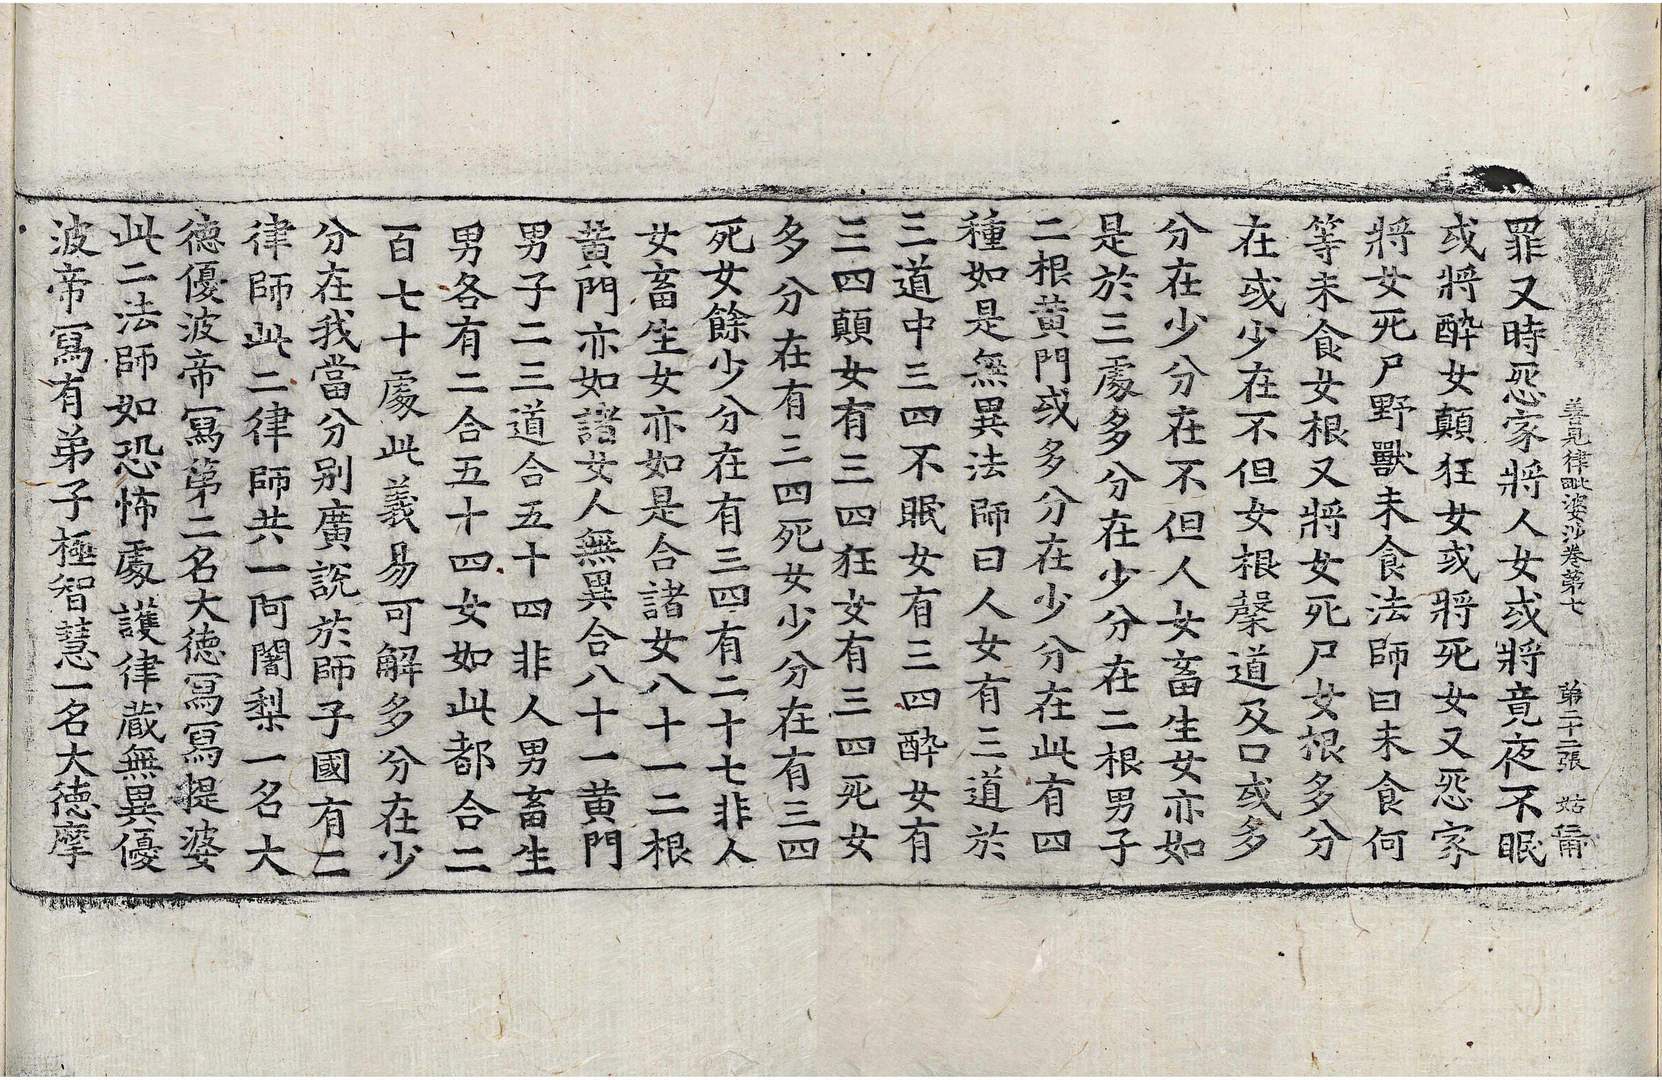 善見律毗婆沙卷第七　第二十二張　姑
罪又時惡家將人女或將竟夜不眠
或將醉女顛狂女或將死女又惡家
將女死尸野獸未食法師曰未食何
等未食女根又將女死尸女根多分
在或少在不但女根㲉道及口或多
分在少分在不但人女畜生女亦如
是於三處多分在少分在二根男子
二根黃門或多分在少分在此有四
種如是無異法師曰人女有三道於
三道中三四不眠女有三四醉女有
三四顛女有三四狂女有三四死女
多分在有三四死女少分在有三四
死女餘少分在有三四有二十七非人
女畜生女亦如是合諸女八十一二根
黃門亦如諸女人無異合八十一黃門
男子二三道合五十四非人男畜生
男各有二合五十四女如此都合二
百七十處此義易可解多分在少
分在我當分別廣說於師子國有二
律師此二律師共一阿闍梨一名大
德優波帝寫第二名大德寫寫提婆
此二法師如恐怖處護律藏無異優
波帝寫有弟子極智慧一名大德摩